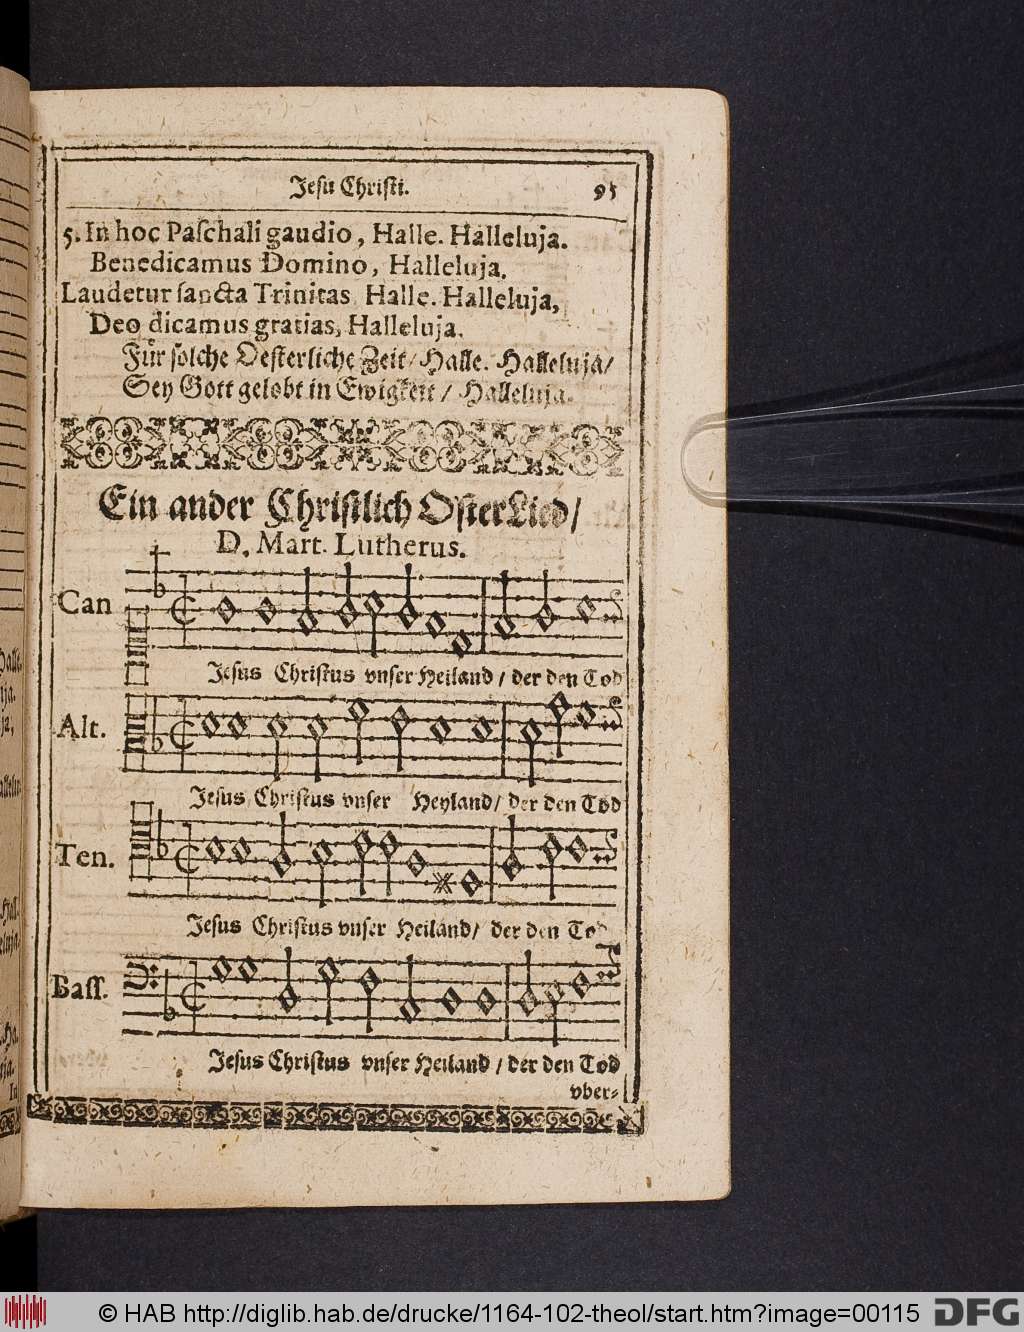 Jesu Christi. 95
5. In hoc Paſchali gaudio, Halle. Halleluja.
Benedicamus Domino, Halleluja.
Laudetur ſancta Trinitas Halle. Halleluja,
Deo dicamus gratias, Halleluja.
Fuͤr ſolche Oeſterliche Zeit/ Halle. Halleluja/
Sey Gott gelobt in Ewigkeit/ Halleluja.
Ein ander Chriſtlich OſterLied/
D. Mart. Lutherus.
Can
Jeſus Chriſtus vnſer Heiland/ der den Tod
Alt.
Jeſus Chriſtus vnſer Heyland/ der den Tod
Ten.
Jeſus Chriſtus vnſer Heiland/ der den Tod
Baſſ.
Jeſus Chriſtus vnſer Heiland/ der den Tod
vber-
© HAB http://diglib.hab.de/drucke/1164-102-theol/start.htm?image=00115 DFG